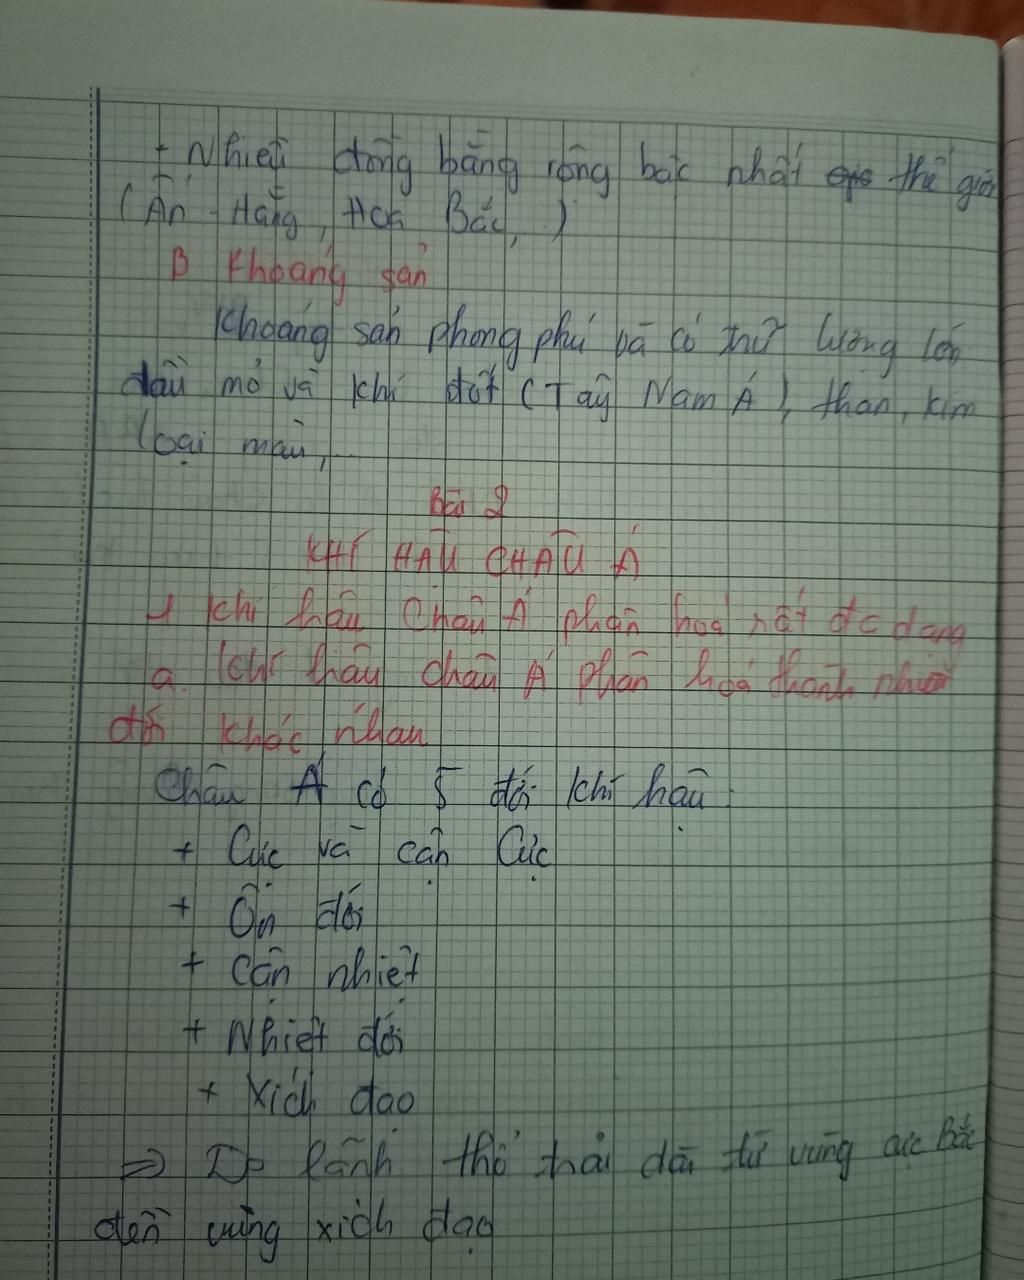 + Nhiều đồng bằng rộng bậc nhất thế giới
(Ấn - Hằng, Hoa Bắc, )
B Khoáng sản
Khoáng sản phong phú và có trữ lượng lớn
dầu mỏ và khí đốt (Tây Nam Á), than, kim
loại màu,
Bài 2
KHÍ HẬU CHÂU Á
1 Khí hậu Châu Á phân hoá rất đa dạng
a. Khí hậu châu Á phân hoá thành nhiều
đới khác nhau
Châu Á có 5 đới khí hậu :
+ Cực và cận Cực
+ Ôn đới
+ Cận nhiệt
+ Nhiệt đới
+ Xích đạo
=> Do lãnh thổ trải dài từ vùng cực Bắc
đến vùng xích đạo